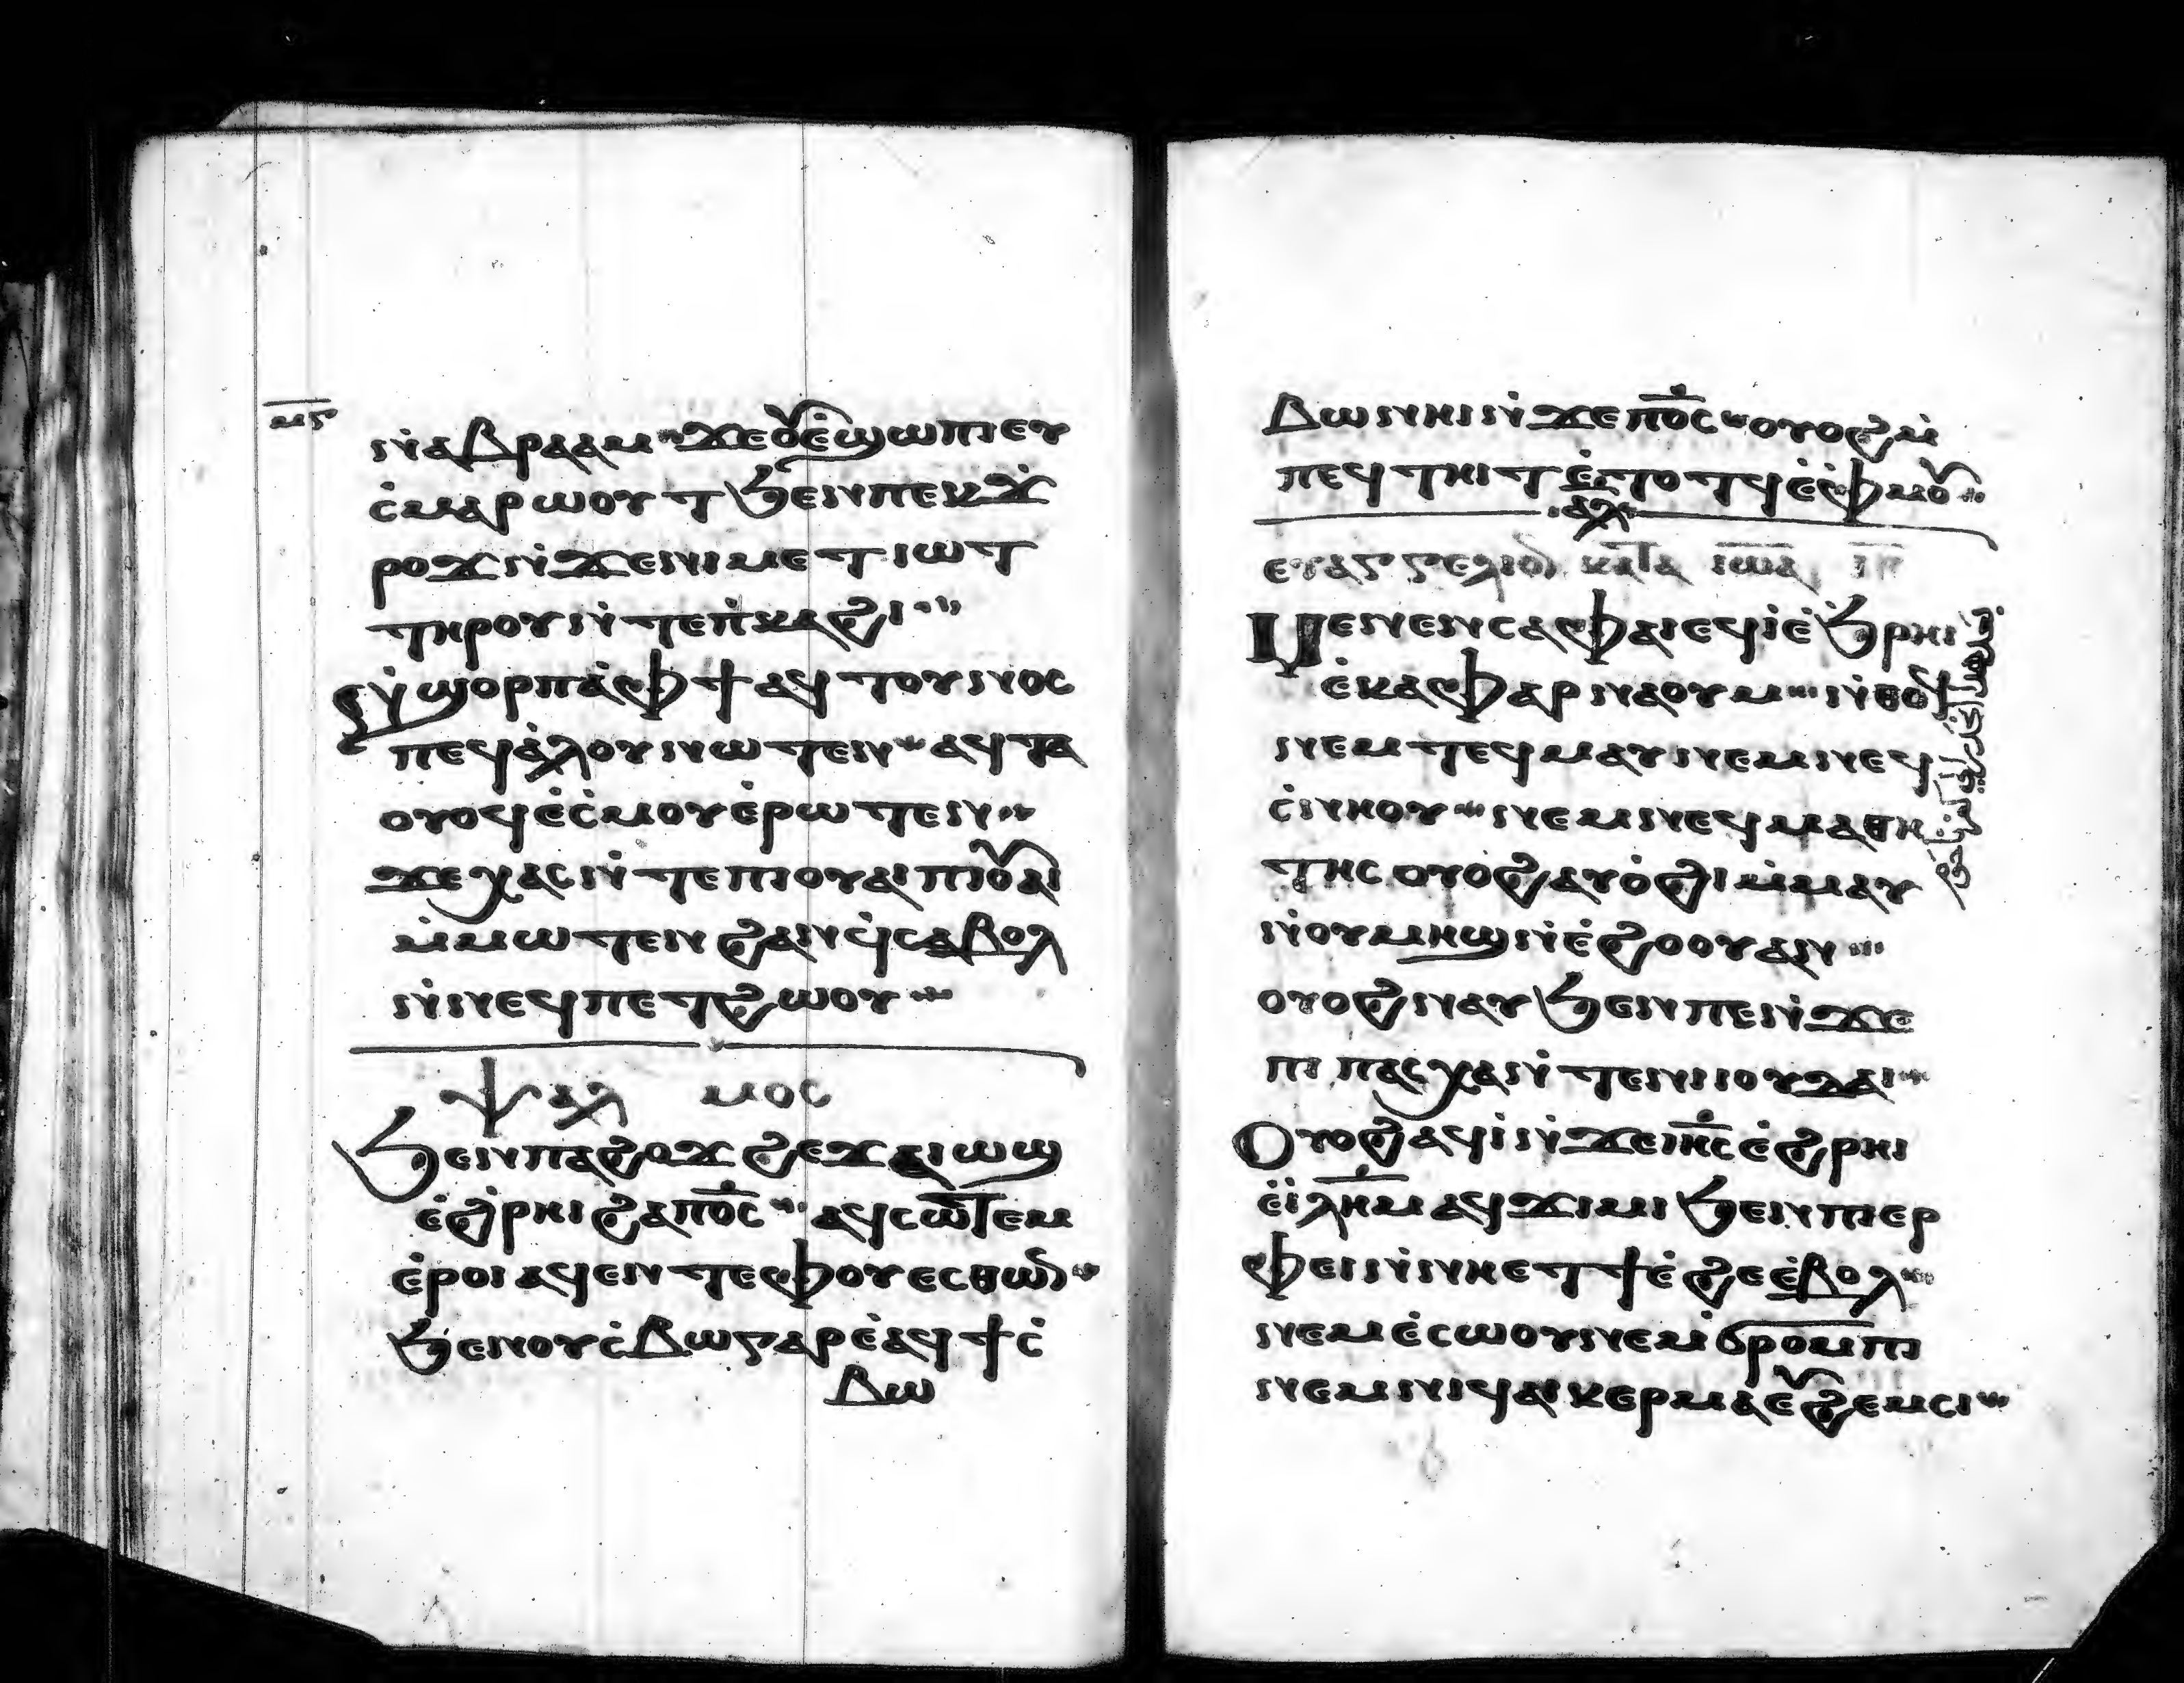 ⲙ̅ⲋ̅
ⲛ̇ⲁⲃⲣⲁⲁⲙ ϫⲉⲟⲩⲉ̇ϣⲱⲡⲓⲉⲩ
ⲥ̇ⲙⲁⲣⲱⲟⲩⲧ ϧⲉⲛⲡⲉⲕϫ̇
ⲣⲟϫ ⲛ̇ϫⲉⲛⲓⲙⲉⲧⲓⲱⲧ
ⲧⲏⲣⲟⲩ ⲛ̇ⲧⲉⲡ̇ⲕⲁϩⲓ
ⲛ̇ϣⲟⲣⲡ ⲁ̇ⲫϯ ⲁϥⲧⲟⲩⲛⲟⲥ
ⲡⲉϥⲁ̇ⲗⲟⲩ ⲛⲱⲧⲉⲛ ⲁϥⲧⲁ
ⲟⲩⲟϥ ⲉ̇ⲥ̇ⲙⲟⲩ ⲉ̇ⲣⲱⲧⲉⲛ
ϫⲉⲭⲁⲥ ⲛ̇ⲧⲉⲡⲓⲟⲩⲁⲓ ⲡⲓⲟⲩⲁⲓ
ⲙ̇ⲙⲱⲧⲉⲛ ϩⲁⲛϥ̇ ⲥⲁⲃⲟⲗ
ⲛ̇ⲛⲉϥⲡⲉⲧϩⲱⲟⲩ
ⲯⲁⲗⲙⲟⲥ
ϧⲉⲛⲡⲁϩⲟϫϩⲉϫ ⲁⲓⲱϣ
ⲉ̇ϩ̇ⲣⲏⲓ ϩⲁⲡⲟ̅ⲥ̅ ⲁϥⲥⲱⲧⲉⲙ
ⲉ̇ⲣⲟⲓ ⲁϥⲉⲛⲧ ⲉⲫⲟⲩⲉⲥⲑⲱⲛ
ϧⲉⲛⲟⲩⲥ̇ⲃⲱ ⲅⲁⲣ ⲉ̇ⲁϥϯⲥ̇
ⲃⲱ
ⲃⲱ ⲛⲏⲓ ⲛ̇ϫⲉⲡⲟ̅ⲥ̅ ⲟⲩⲟϩ ⲙ̇
ⲡⲉϥⲧⲏⲓⲧ ⲉ̇ⲧⲟⲧϥ ⲉ̇ⲫ̇ⲙⲟⲩ
ⲁⲗ
ⲉⲩⲁⲅⲅⲉⲗⲓⲟⲛ ⲕⲁⲧⲁ ⲓⲱⲁ
ⲙⲉⲛⲉⲛⲥⲁ ⲫⲁⲓ ⲉϥⲓ̇ ⲉ̇ϧ̇ⲣⲏⲓ
ⲉ̇ⲕⲁⲫⲁⲣⲛⲁⲟⲩⲙ ⲛ̇ⲑⲟϥ
ⲛⲉⲙ ⲧⲉϥⲙⲁⲩ ⲛⲉⲙ ⲛⲉϥ
ⲥ̇ⲛⲏⲟⲩ ⲛⲉⲙ ⲛⲉϥⲙⲁⲑⲏ
ⲧⲏⲥ ⲟⲩⲟϩ ⲁⲩⲟ̇ϩⲓ ⲙ̇ⲙⲁⲩ
ⲛ̇ⲟⲩⲙⲏϣ ⲛ̇ⲉ̇ϩⲟⲟⲩ ⲁⲛ
ⲟⲩⲟϩ ⲛⲁⲩ ϧⲉⲛⲡⲉⲛ̇ϫⲉ
ⲡⲓⲡⲁⲥⲭⲁ ⲛ̇ⲧⲉⲛⲓⲓⲟⲩⲇⲁⲓ
Ⲟⲩⲟϩ ⲁϥⲓ̇ ⲛ̇ϫⲉⲓⲏ̅ⲥ̅ ⲉ̇ϩ̇ⲣⲏⲓ
ⲉ̇ⲓ̇ⲗ̅ⲏ̅ⲙ̅ ⲁϥϫⲓⲙⲓ ϧⲉⲛⲡⲓⲉⲣ
ⲫⲉⲓ ⲛ̇ⲛⲏⲉⲧϯ ⲉ̇ϩⲉ ⲉ̇ⲃⲟⲗ
ⲛⲉⲙ ⲉ̇ⲥⲱⲟⲩ ⲛⲉⲙ ϭⲣⲟⲙⲡⲓ
ⲛⲉⲙ ⲛⲓϥⲁⲓⲕⲉⲣⲙⲁ ⲉⲩϩⲉⲙⲥⲓ